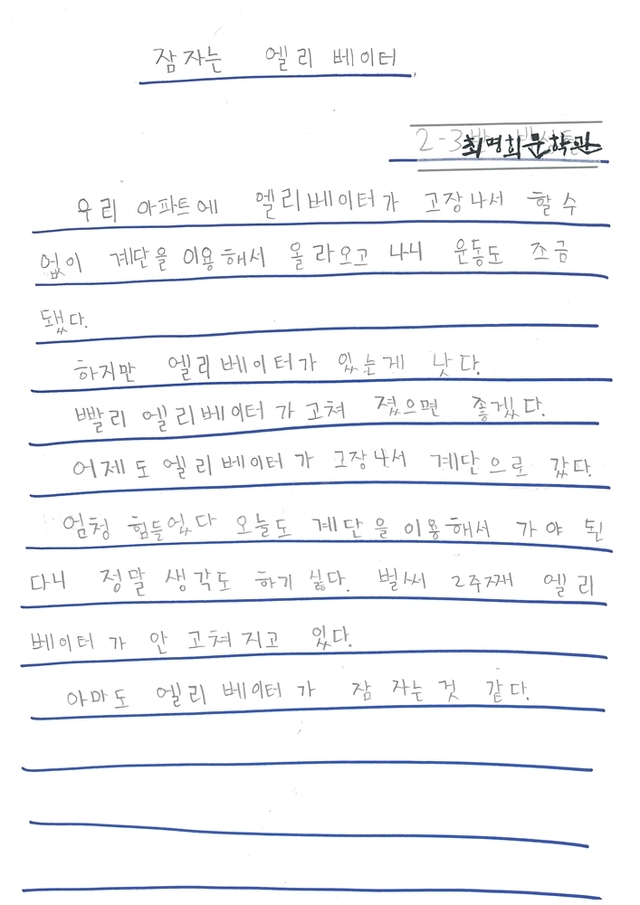 잠자는 엘리베이터
2-3 최명희문학관
우리 아파트에 엘리베이터가 고장나서 할 수
없이 계단을 이용해서 올라오고 나니 운동도 조금
됐다.
하지만 엘리베이터가 있는게 낫다.
빨리 엘리베이터가 고쳐 졌으면 좋겠다.
어제도 엘리베이터가 고장나서 계단으로 갔다.
엄청 힘들었다 오늘도 계단을 이용해서 가야 된
다니 정말 생각도 하기 싫다. 벌써 2주째 엘리
베이터가 안 고쳐지고 있다.
아마도 엘리베이터가 잠 자는 것 같다.